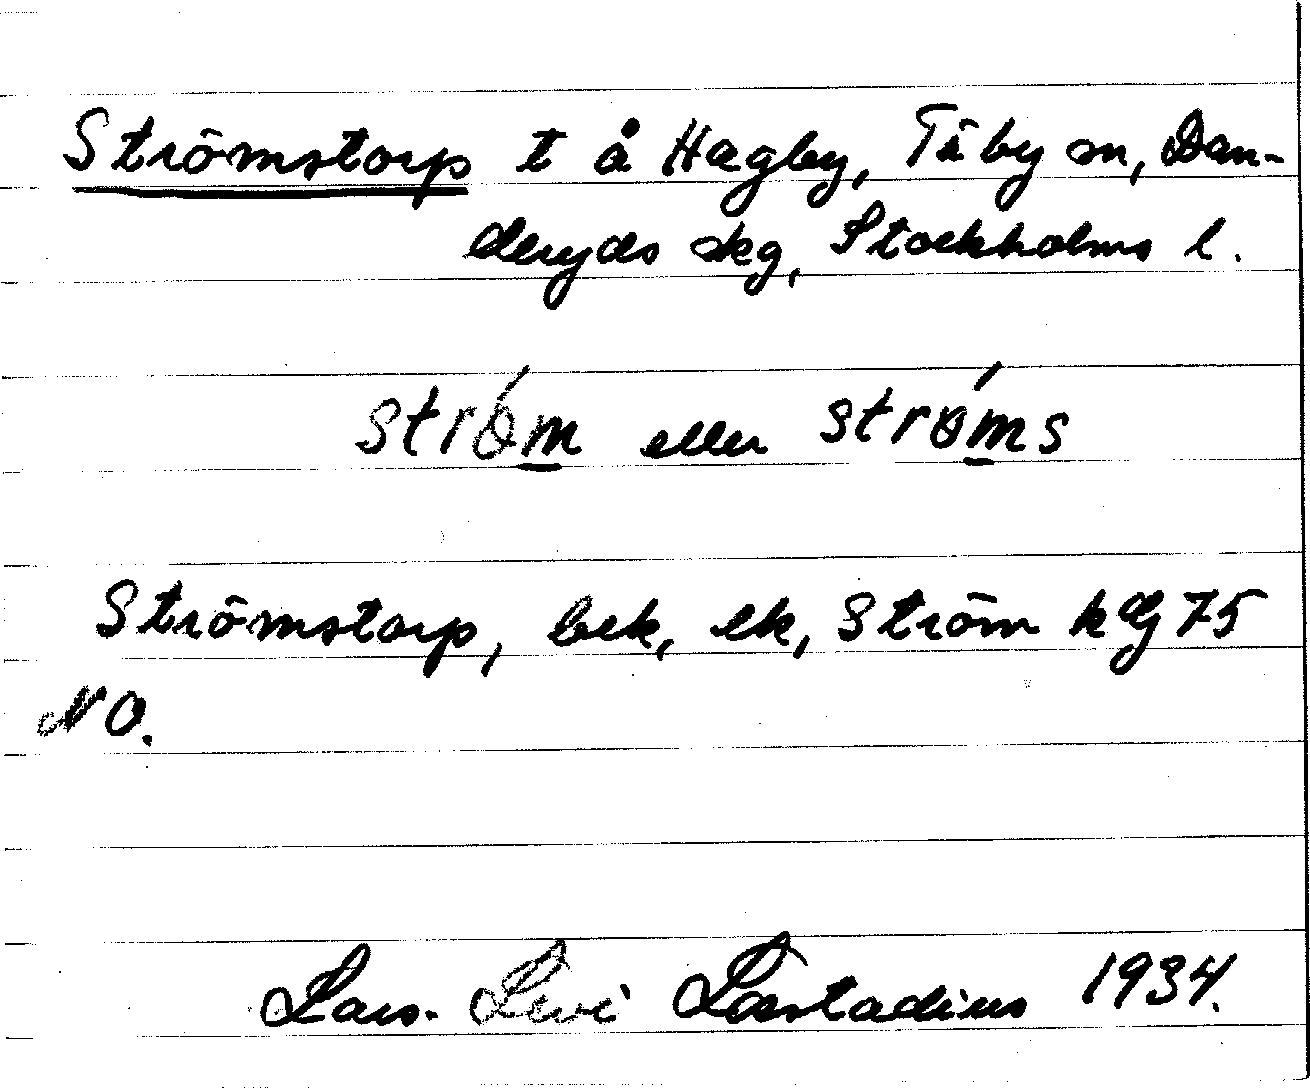 Strömstorp t å Hagby, Täby sn, Dan-
deryds skg, Stockholms l.
strǿm eller strǿms
Strömstorp, bek, ek, Ström kG 75
NO.
Lars-Levi Læstadius 1934.